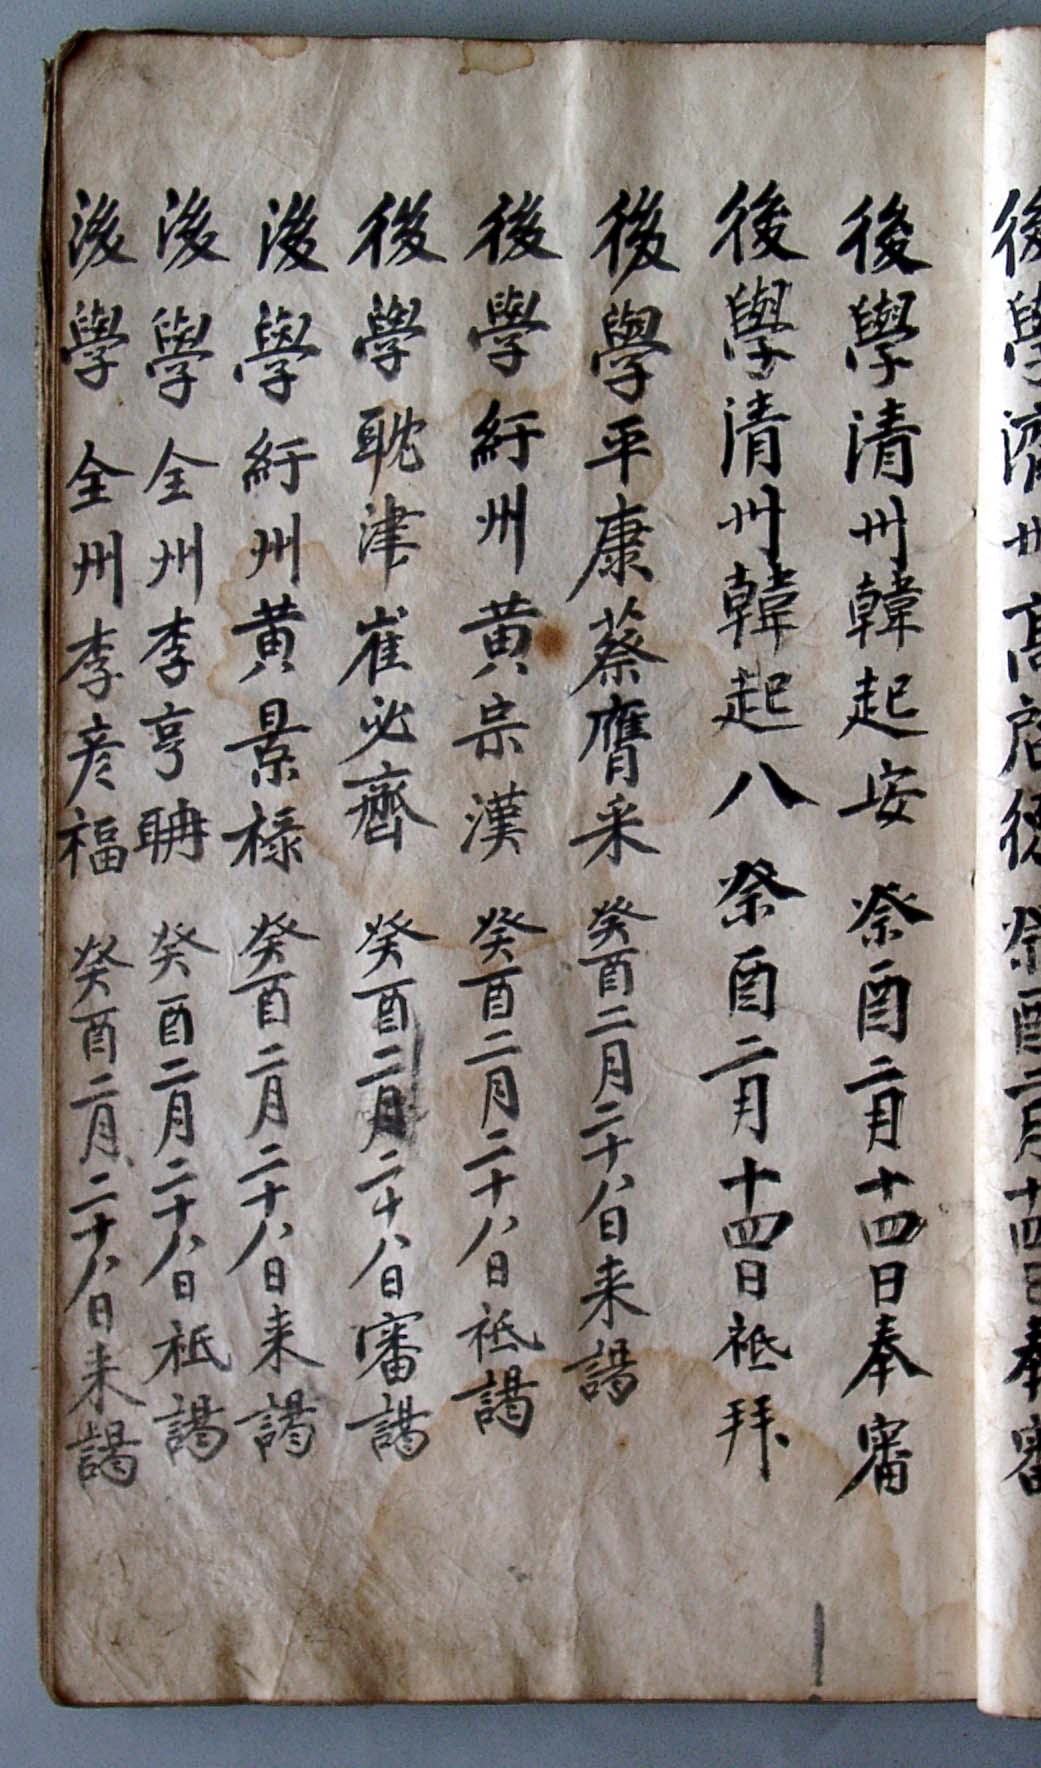 後學濟州高啓
酉二月十四日奉審
後學清州韓起安 癸酉二月十四日奉審
後學清州韓起八 癸酉二月十四日祗拜
後學平康蔡膺采 癸酉二月二十八日来謁
後學紆州黄宗漢 癸酉二月二十八日祗謁
後學耽津崔必齊 癸酉二月二十八日審謁
後學紆州黄景祿 癸酉二月二十八日来謁
後學全州李亨聃 癸酉二月二十八日祗謁
後學全州李彦福 癸酉二月二十八日来謁